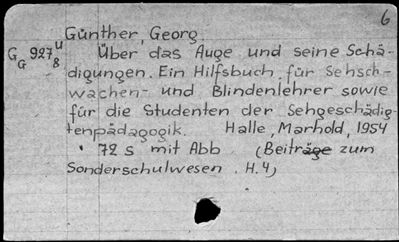 6
Günther, Georg.
G G 927 u 8 Über das Auge und seine Schä-
digungen. Ein Hilfsbuch für Sehsch-
wachen- und Blindenlehrer sowie
für die Studenten der Sehgeschädig-
tenpädagogik. Halle, Marhold, 1954
72 S mit Abb. (Beiträge zum
Sonderschulwesen. H.4)